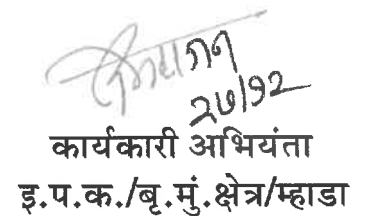 २७/१२
कार्यकारी अभियंता
इ.प.क./बृ.मुं.क्षेत्र/म्हाडा